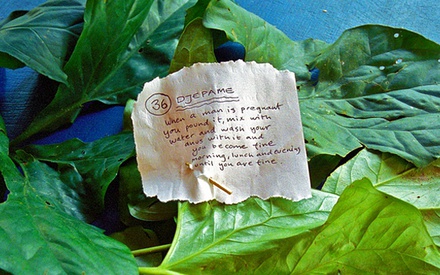 36 DJEPAME
When a man is pregnant
you pound it, mix with
water and wash your
anus with it and
you become fine
morning, lunch and evening
until you are fine